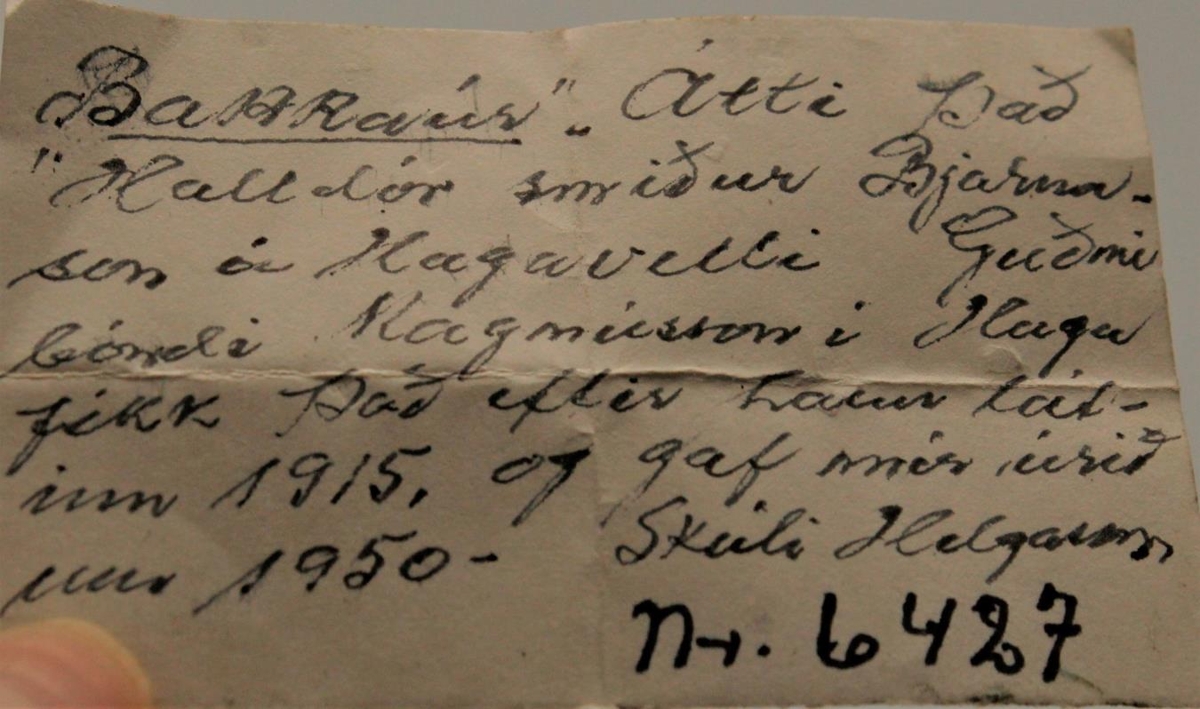 "Bakkaúr". Átti það
"Halldór smiður Bjarna-
son á Hagavelli Guðmi
bóndi Magnússon i Haga
fékk það eftir hann lát-
inn 1915, og gaf mér úrið
um 1950- Skúli Helgason
Nr. 6427